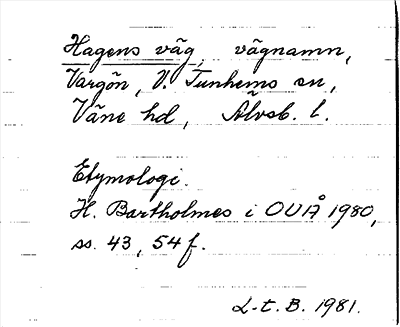 Hagens väg, vägnamn,
Vargön, V. Tunhems sn,
Väne hd, Älvsb. l.
Etymologi.
H. Bartholmes i OUÅ 1980,
ss. 43, 54 f.
L-t. B. 1981.